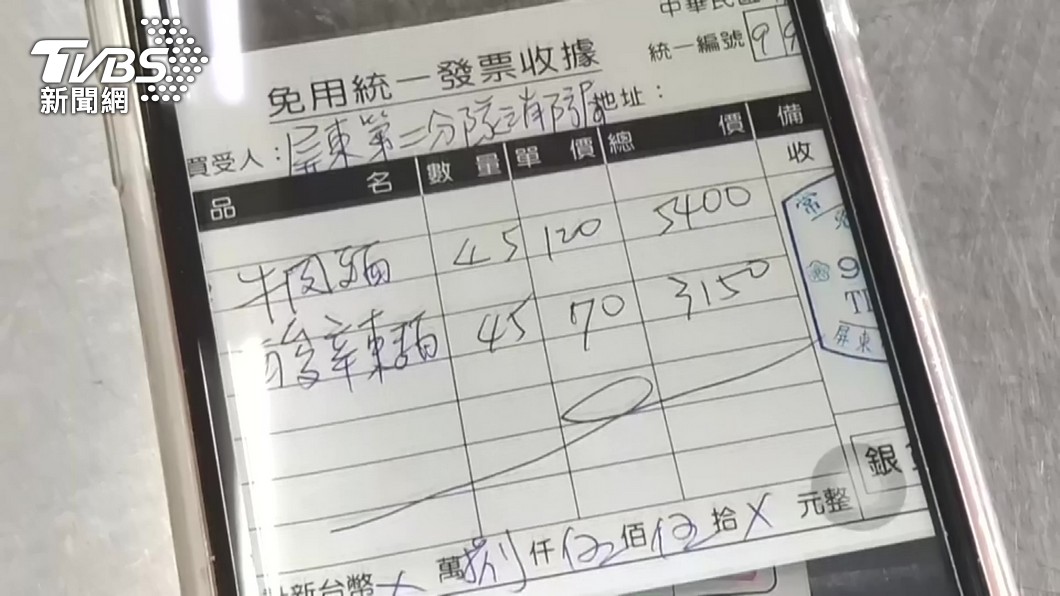 TVBS
新聞網
中華民國
統一編號 9 9
免用統一發票收據
買受人：屏東第二分隊消防 地址：
品 名 數 量 單 價 總 價 備
收
牛肉麵 45 120 5400
酸辛東麵 45 70 3150
9
屏東
銀
計新台幣 X 萬 捌 仟 伍 佰 伍 拾 X 元整